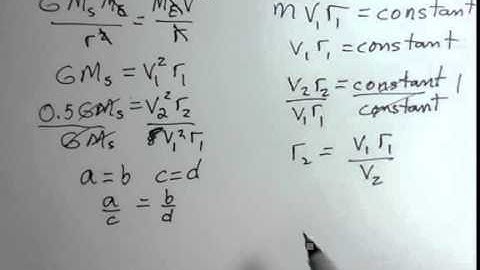 G M_s m_e / r^2 = m_e v^2 / r
G M_s = V_1^2 r_1
0.5 G M_s / G M_s = V_2^2 r_2 / V_1^2 r_1
a = b c = d
a/c = b/d
m V_1 r_1 = constant
V_1 r_1 = constant
V_2 r_2 / V_1 r_1 = constant / constant 1
r_2 = V_1 r_1 / V_2